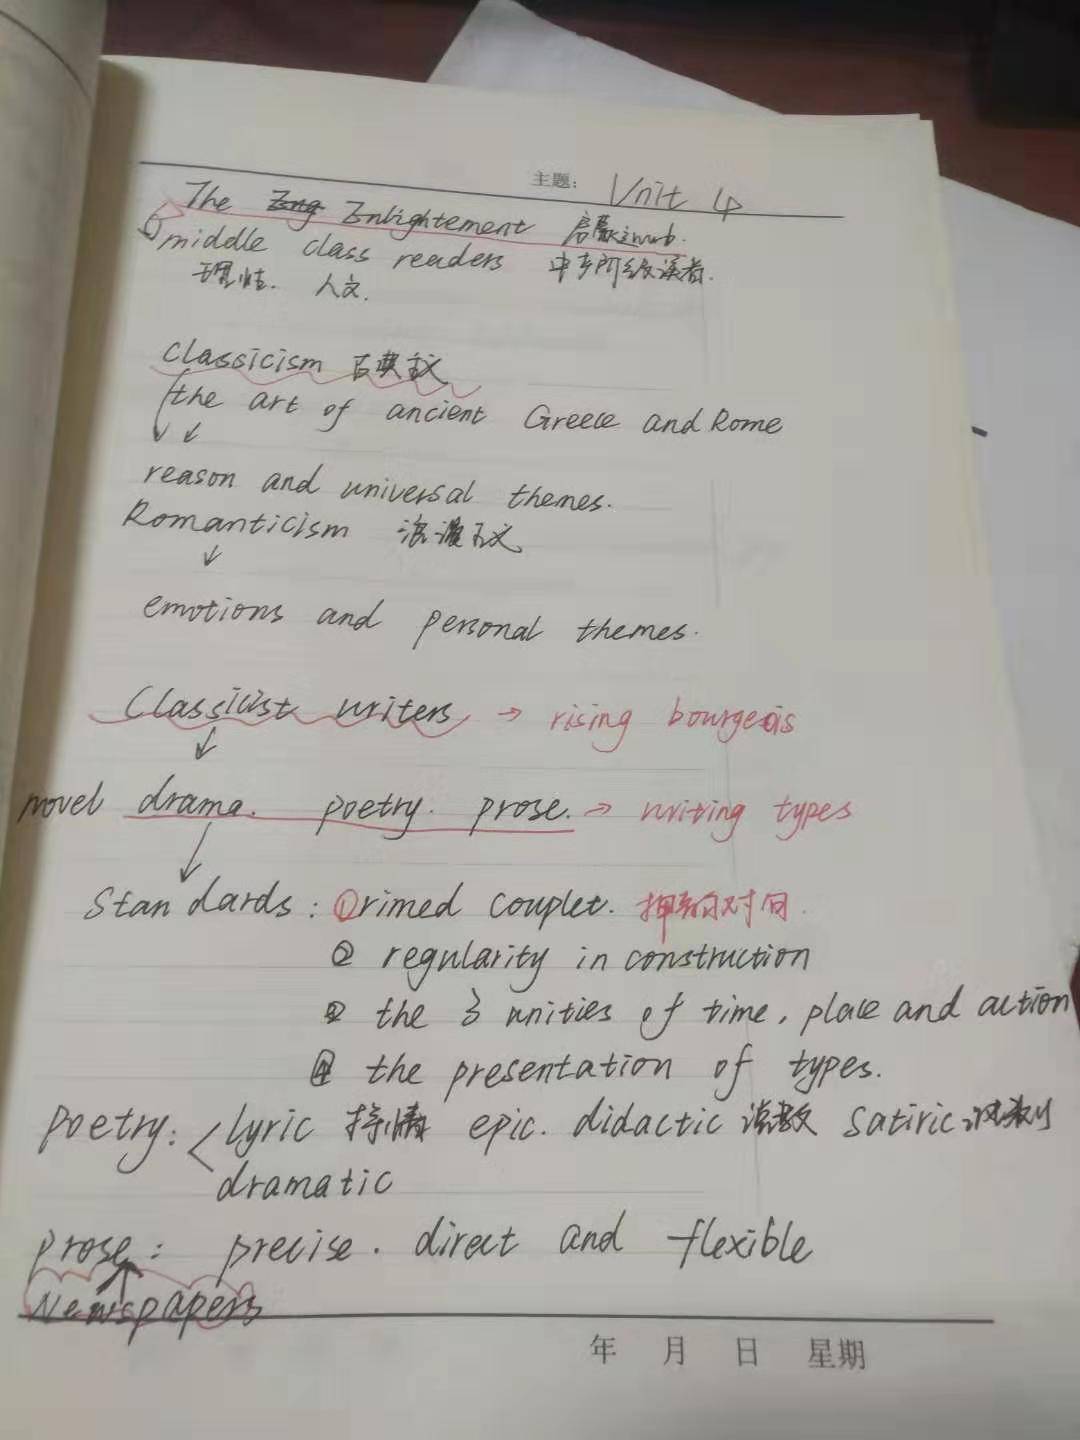 主题: Unit 4
The Enlightement 启蒙
middle class readers 中产阶级读者.
理性. 人文.
Classicism 古典主义
the art of ancient Greece and Rome
reason and universal themes.
Romanticism 浪漫主义
emotions and personal themes.
Classicist writers → rising bourgeois
novel drama. poetry. prose. → writing types
Standards: ① rimed couplet. 押韵对句.
② regularity in construction
③ the 3 unities of time, place and action
④ the presentation of types.
Poetry: lyric 抒情 epic. didactic 说教 satiric 讽刺
dramatic
prose: precise. direct and flexible
Newspapers
年 月 日 星期